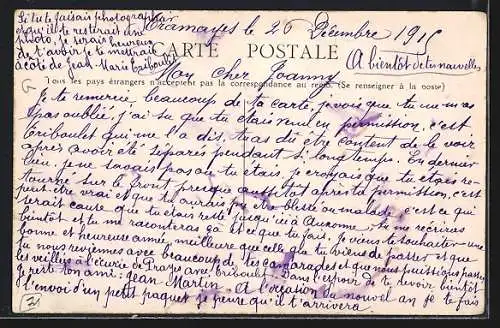 Si tu te faisais photographier
et qu'il te resterait une
photo, je serais heureux
de t'avoir je te mettrais
à côté de Jean-Marie Triboulet
Tramayes le 26 Décembre 1915
CARTE POSTALE
(A bientôt de tes nouvelles
Mon Cher Joanny
Tous les pays étrangers n'acceptent pas la correspondance au recto. (Se renseigner à la poste)
Je te remercie beaucoup de ta carte, je vois que tu ne m'as
pas oublié, j'ai su que tu étais venu en permission, c'est
Triboulet qui me l'a dit, tu as dû être content de le voir
après avoir été séparés pendant si longtemps. En dernier
lieu, je ne savais pas où tu étais, je croyais que tu étais re-
tourné sur le front presque aussitôt après ta permission, c'est
peut-être vrai et que tu aurais pu être blessé ou malade, c'est ce qui
serait cause que tu étais resté jusqu'ici à Auxonne, tu me récriras
bientôt et tu me raconteras ça et ce que tu fais. Je viens te souhaiter une
bonne et heureuse année, meilleure que celle que tu viens de passer et que
tu nous reviennes avec beaucoup de tes camarades et que nous puissions passer
les veillées à l'écurie de Prayes avec Triboulet. Dans l'espoir de te revoir bientôt
je reste ton ami. Jean Martin A l'occasion du nouvel an je te fais
l'envoi d'un petit paquet je pense qu'il t'arrivera.